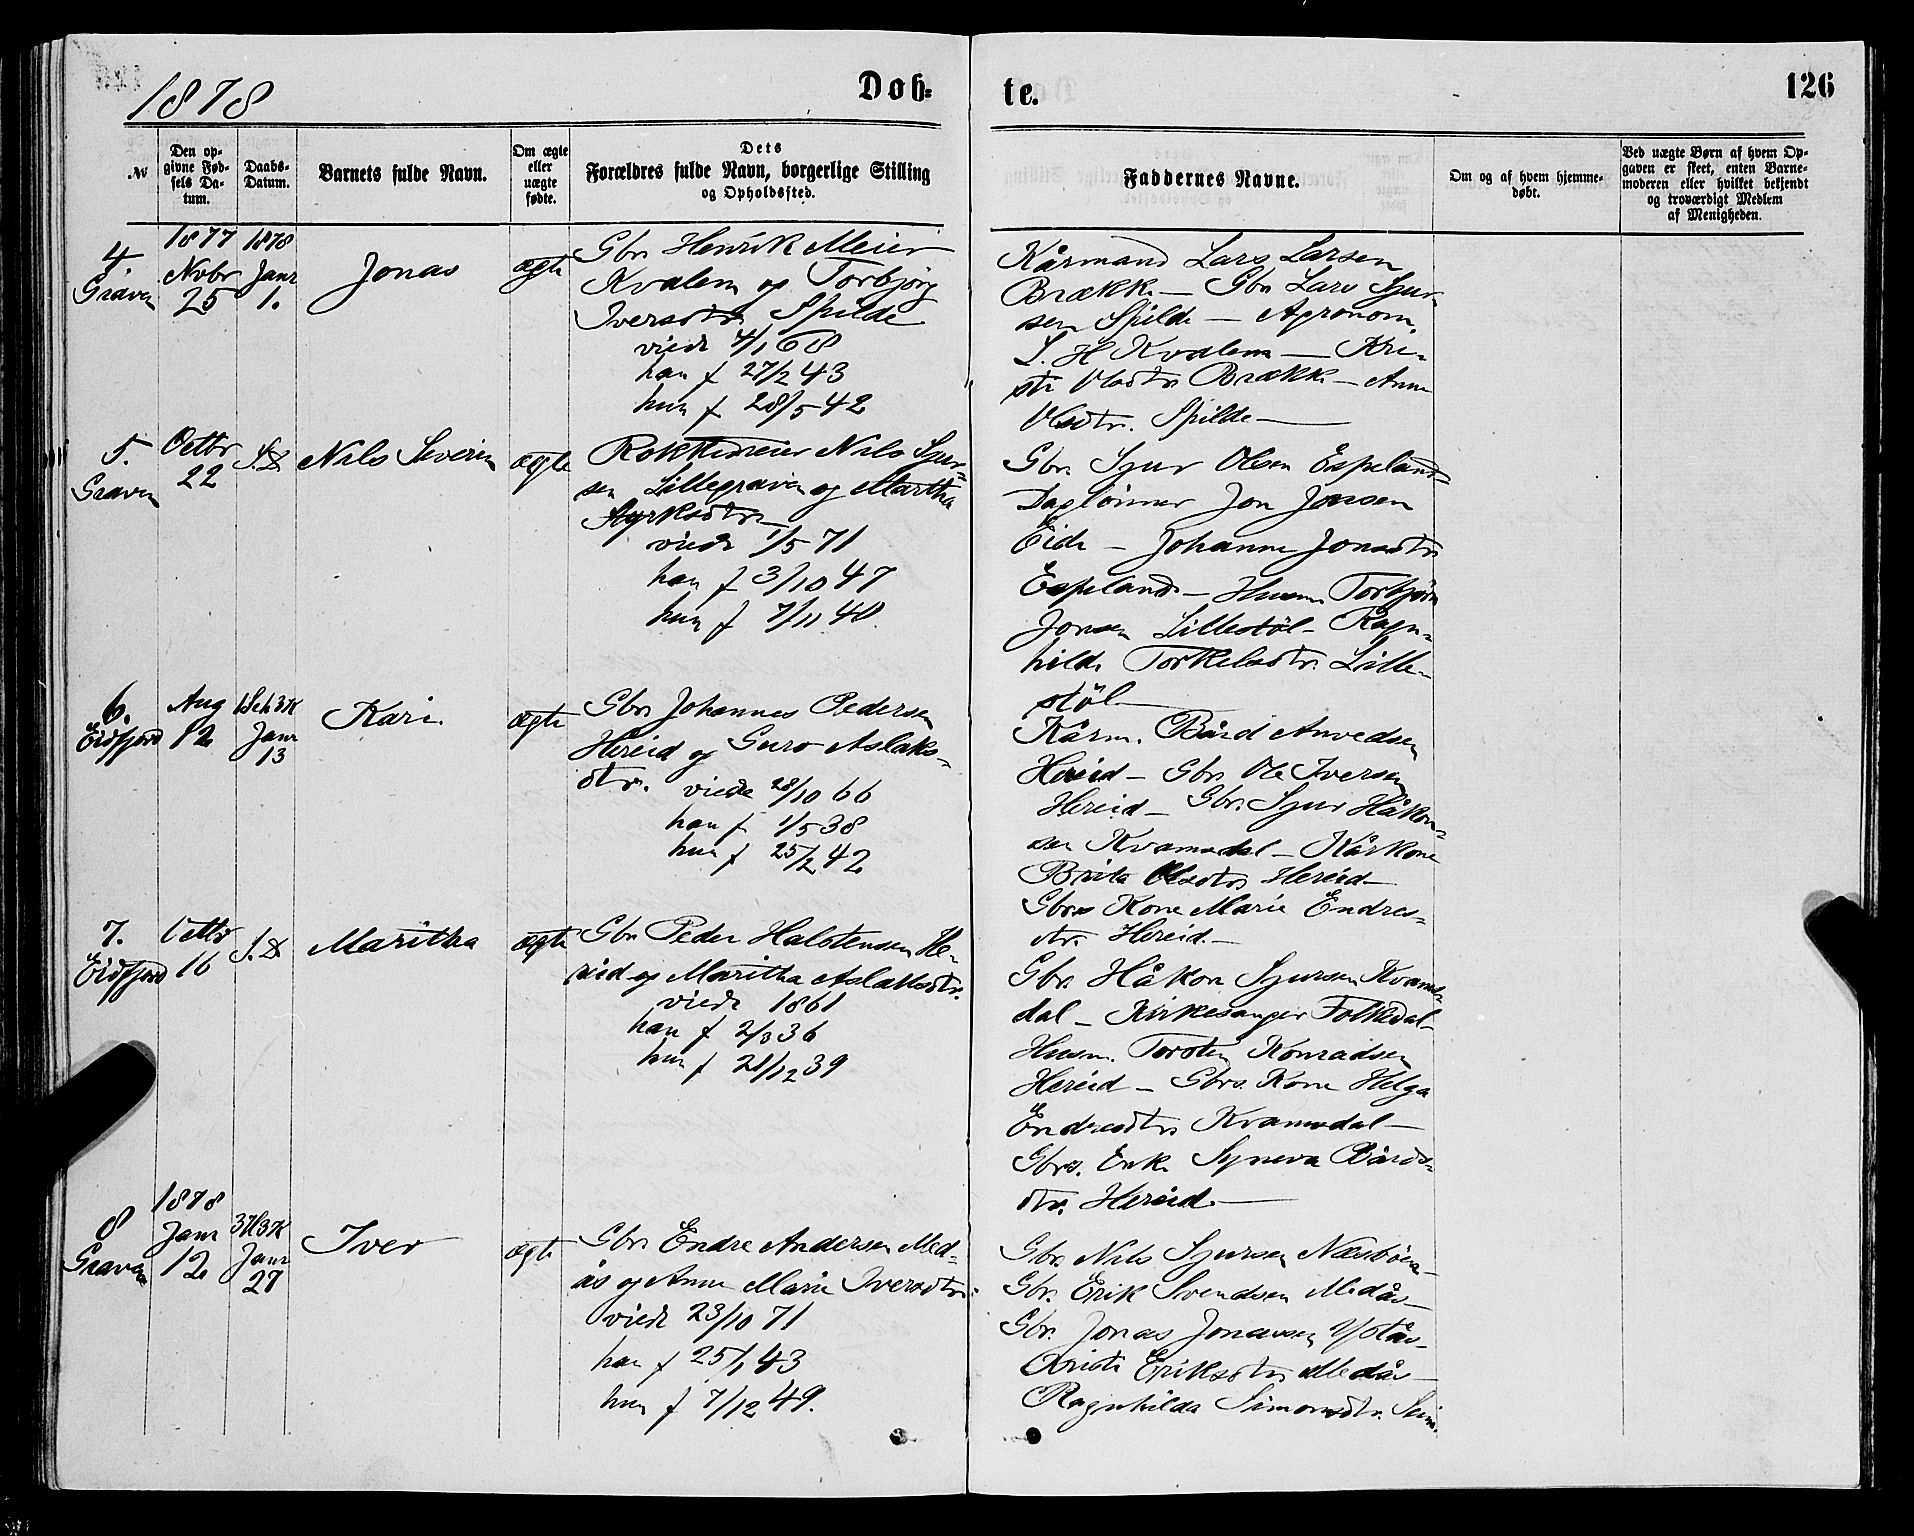 1878
Døb-
te.
126
№
Den op-
givne Fød-
sels Da-
tum.
Daabs-
Datum.
Barnets fulde Navn.
Om ægte
eller
uægte
fødte.
Dets
Forældres fulde Navn, borgerlige Stilling
og Opholdssted.
Faddernes Navne.
Om og af hvem hjemme-
døbt.
Ved uægte Børn af hvem Op-
gaven er skeet, enten Barne-
moderen eller hvilket bekjendt
og troværdigt Medlem
af Menigheden.
4.
Graven
1877
Novbr
25
1878
Janr
1.
Jonas
ægte
Gbr. Henrik Meier
Kvalem og Torbjørg
Iversdtr. Spilde
viede 4/1 68
han f 27/2 43
hun f 28/5 42
Kårmand Lars Larsen
Brække – Gbr. Lars Sjur-
sen Spilde – Agronom
S. H Kvalem – Kri-
sti Olsdtr. Brække – Anna
Olsdtr. Spilde –
5.
Graven
Octbr
22
S.D
Nils Severin
ægte
Rokkedreier Nils Sjur-
sen Lillegraven og Martha
Styrksdtr.
viede 1/5 71
han f 3/10 47
hun f 7/11 48
Gbr. Sjur Olsen Espeland
Daglønner Jon Jonsen
Eide – Johanna Jonsdtr
Espeland – Husm. Torbjørn
Jonsen Lillestöl – Ragn-
hilde Torkelsdtr. Lille-
stöl –
6.
Eidfjord
Aug
12
1 S e h 3 K
Janr
13
Kari.
ægte
Gbr. Johannes Pedersen
Hereid og Guro Aslaks-
dtr. viede 28/10 66
han f 1/5 38
hun f 25/2 42
Kårm. Bård Anvedsen
Hereid – Gbr. Ole Iversen
Hereid – Gbr. Sjur Håkon-
sen Kvamsdal – Kårkone
Brita Olsdtr Hereid –
Gbrs Kone Marie Endres-
dtr. Hereid. –
7.
Eidfjord
Octbr
16
S.D
Maritha
ægte
Gbr. Peder Halstensen He-
reid og Maritha Aslaksdtr.
viede 1861
han f 2/3 36
hun f 21/12 39
Gbr. Håkon Sjursen Kvams-
dal – Kirkesanger Folkedal –
Husm. Torsten Konradsen
Hereid – Gbrs. Kone Helga
Endresdtr Kvamsdal –
Gbrs. Enke Syneva Bårds-
dtr. Hereid. –
8
Graven
1878
Janr
12
3 H 3 K
Janr
27
Iver
ægte
Gbr. Endre Andersen Med-
ås og Anna Marie Iversdtr.
viede 23/10 71
han f 25/1 43
hun f 7/12 49.
Gbr. Nils Sjursen Næsbøen –
Gbr. Erik Svendsen Medås –
Gbr. Jonas Jonassen Ystås –
Kristi Eriksdtr Medås –
Ragnhilda Simonsdtr. Seim.